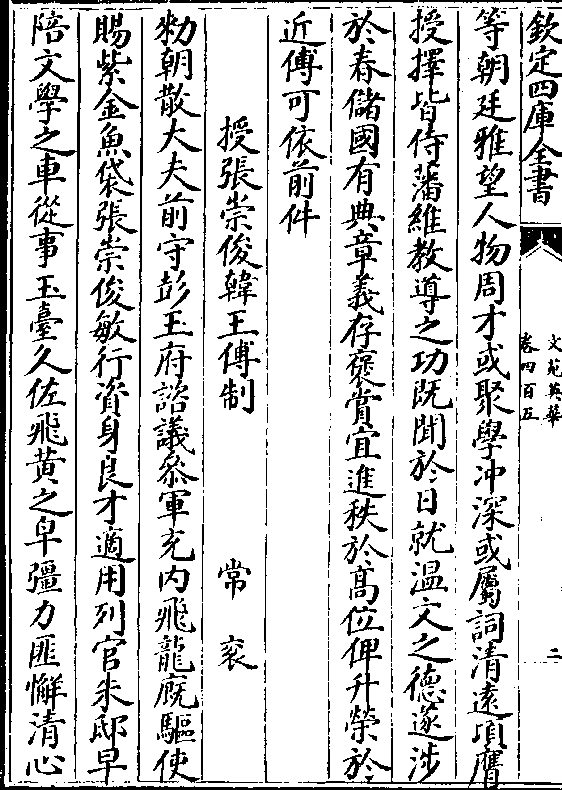 欽定四庫全書
文苑英華
卷四百五
二
等朝廷雅望人物周才或聚學冲深或屬詞清遠頃膺
授擇皆侍藩維教導之功既聞於日就温文之德遂涉
於春儲國有典章義存褒賞宜進秩於髙位俾升榮於
近傅可依前件
授張崇俊韓王傅制
常衮
勑朝散大夫前守彭王府諮議叅軍充内飛龍廐驅使
賜紫金魚袋張崇俊敏行資身良才適用列官朱邸早
陪文學之車從事玉臺久佐飛黄之皁彊力匪懈清心